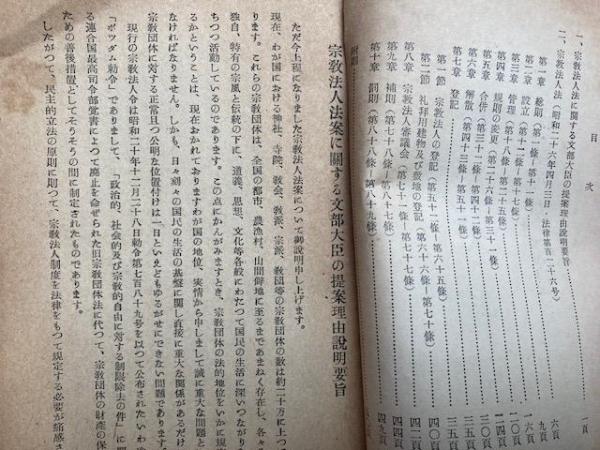 目次
一、宗教法人法に関する文部大臣の提案理由説明要旨……一頁
二、宗教法人法(昭和二十六年四月三日 法律第百二十六号)
第一章 総則(第一條―第十一條)……六頁
第二章 設立(第十二條―第十七條)……九頁
第三章 管理(第十八條―第二十五條)
第四章 規則の変更(第二十六條―第三十一條)
第五章 合併(第三十二條―第四十二條)
第六章 解散(第四十三條―第五十一條)
第七章 登記
第一節 宗教法人の登記(第五十二條―第六十五條)……三五頁
第二節 礼拝用建物及び敷地の登記(第六十六條―第七十條)……四〇頁
第八章 宗教法人審議会(第七十一條―第七十七條)……四二頁
第九章 補則(第七十八條―第八十七條)……四四頁
第十章 罰則(第八十八條―第八十九條)……四九頁
附則
宗教法人法案に關する文部大臣の提案理由說明要旨
ただ今上程になりました宗教法人法案について御説明申し上げます。
現在、わが国における神社、寺院、教会、教派、宗派、教団等の宗教団体の数は約二十万に上つて
ります。これらの宗教団体は、全国の都市、農漁村、山間僻地に至るまであまねく存在し、各々
独自、特有の宗風と伝統の下に、道義、思想、文化等各般にわたつて国民の生活に深いつながり
ちつつ活動しているのであります。この点にかんがみますとき、宗教団体の法的地位をいかに規
るかということは、現在おかれておりますわが国の地位、実情から申しまして誠に重大な問題と
なければなりません。しかも、日々刻々の国民の生活の基盤に関し直接に重大な関係があるだけ
宗教団体に対する正常且つ公明な位置付けは一日といえどもゆるがせにできない問題であります。
現行の宗教法人令は昭和二十年十二月二十八日勅令第七百八十九号を以つて公布されたいわゆ
「ポツダム勅令」でありまして、「政治的、社会的及び宗教的自由に対する制限除去の件」に
る連合国最高司令部覚書によつて廃止を命ぜられた旧宗教団体法に代つて、宗教団体の財産の保
ための善後措置としてそうそうの間に制定されたものであります。
したがつて、民主的立法の原則に則つて、宗教法人制度を法律をもつて規定する必要が痛感さ